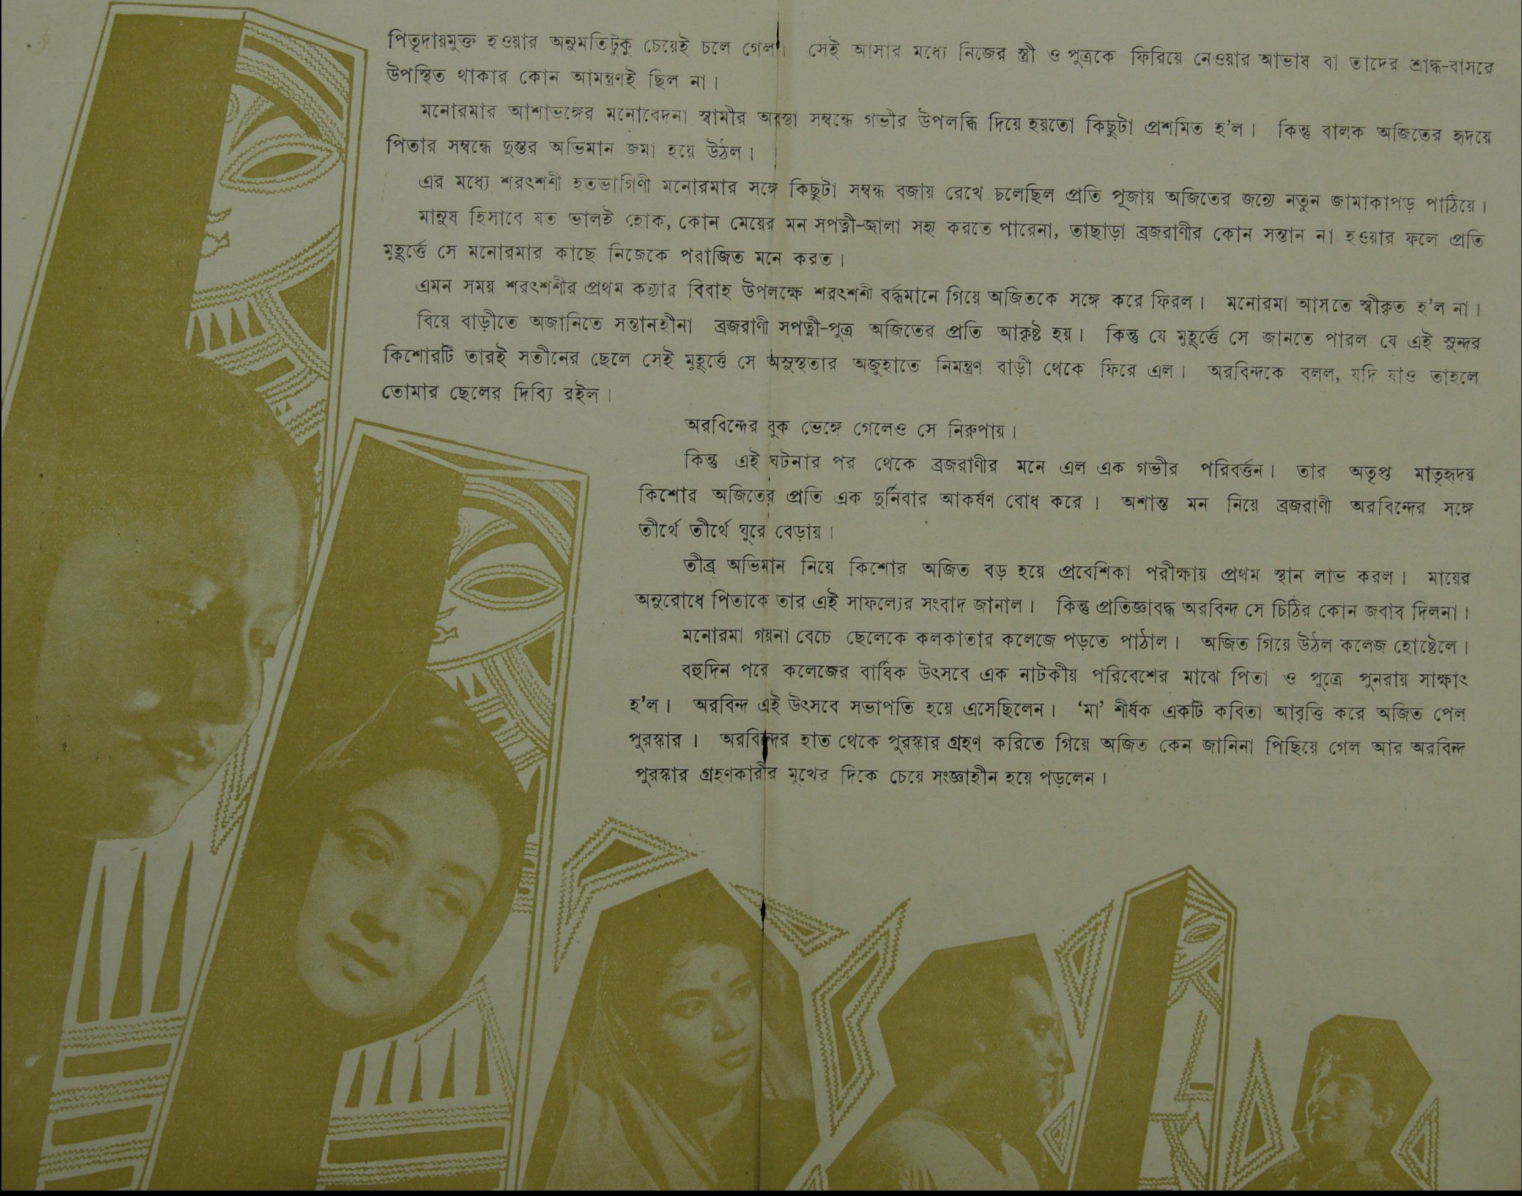 পিতৃদায়মুক্ত হওয়ার অনুমতিটুকু চেয়েই চলে গেল। সেই আসার মধ্যে নিজের স্ত্রী ও পুত্রকে ফিরিয়ে নেওয়ার আভাষ বা তাদের শ্রাদ্ধ-বাসরে
উপস্থিত থাকার কোন আমন্ত্রণই ছিল না।
মনোরমার আশাভঙ্গের মনোবেদনা স্বামীর অবস্থা সম্বন্ধে গভীর উপলব্ধি দিয়ে হয়তো কিছুটা প্রশমিত হ'ল। কিন্তু বালক অজিতের হৃদয়ে
পিতার সম্বন্ধে দুস্তর অভিমান জমা হয়ে উঠল।
এর মধ্যে শরৎশশী হতভাগিণী মনোরমার সঙ্গে কিছুটা সম্বন্ধ বজায় রেখে চলেছিল প্রতি পূজায় অজিতের জন্যে নতুন জামাকাপড় পাঠিয়ে।
মানুষ হিসাবে যত ভালই হোক, কোন মেয়ের মন সপত্নী-জ্বালা সহ্য করতে পারেনা, তাছাড়া ব্রজরাণীর কোন সন্তান না হওয়ার ফলে প্রতি
মুহূর্ত্তে সে মনোরমার কাছে নিজেকে পরাজিত মনে করত।
এমন সময় শরৎশশীর প্রথম কন্যার বিবাহ উপলক্ষে শরৎশশী বর্দ্ধমানে গিয়ে অজিতকে সঙ্গে করে ফিরল। মনোরমা আসতে স্বীকৃত হ'ল না।
বিয়ে বাড়ীতে অজানিতে সন্তানহীনা ব্রজরাণী সপত্নী-পুত্র অজিতের প্রতি আকৃষ্ট হয়। কিন্তু যে মুহূর্ত্তে সে জানতে পারল যে এই সুন্দর
কিশোরটি তারই সতীনের ছেলে সেই মুহূর্ত্তে সে অসুস্থতার অজুহাতে নিমন্ত্রণ বাড়ী থেকে ফিরে এল। অরবিন্দকে বলল, যদি যাও তাহলে
তোমার ছেলের দিব্যি রইল।
অরবিন্দের বুক ভেঙ্গে গেলেও সে নিরুপায়।
কিন্তু এই ঘটনার পর থেকে ব্রজরাণীর মনে এল এক গভীর পরিবর্ত্তন। তার অতৃপ্ত মাতৃহৃদয়
কিশোর অজিতের প্রতি এক দুর্নিবার আকর্ষণ বোধ করে। অশান্ত মন নিয়ে ব্রজরাণী অরবিন্দের সঙ্গে
তীর্থে তীর্থে ঘুরে বেড়ায়।
তীব্র অভিমান নিয়ে কিশোর অজিত বড় হয়ে প্রবেশিকা পরীক্ষায় প্রথম স্থান লাভ করল। মায়ের
অনুরোধে পিতাকে তার এই সাফল্যের সংবাদ জানাল। কিন্তু প্রতিজ্ঞাবদ্ধ অরবিন্দ সে চিঠির কোন জবাব দিলনা।
মনোরমা গয়না বেচে ছেলেকে কলকাতার কলেজে পড়তে পাঠাল। অজিত গিয়ে উঠল কলেজ হোষ্টেলে।
বহুদিন পরে কলেজের বার্ষিক উৎসবে এক নাটকীয় পরিবেশের মাঝে পিতা ও পুত্রে পুনরায় সাক্ষাৎ
হ'ল। অরবিন্দ এই উৎসবে সভাপতি হয়ে এসেছিলেন। 'মা' শীর্ষক একটি কবিতা আবৃত্তি করে অজিত পেল
পুরস্কার। অরবিন্দের হাত থেকে পুরস্কার গ্রহণ করিতে গিয়ে অজিত কেন জানিনা পিছিয়ে গেল আর অরবিন্দ
পুরস্কার গ্রহণকারীর মুখের দিকে চেয়ে সংজ্ঞাহীন হয়ে পড়লেন।